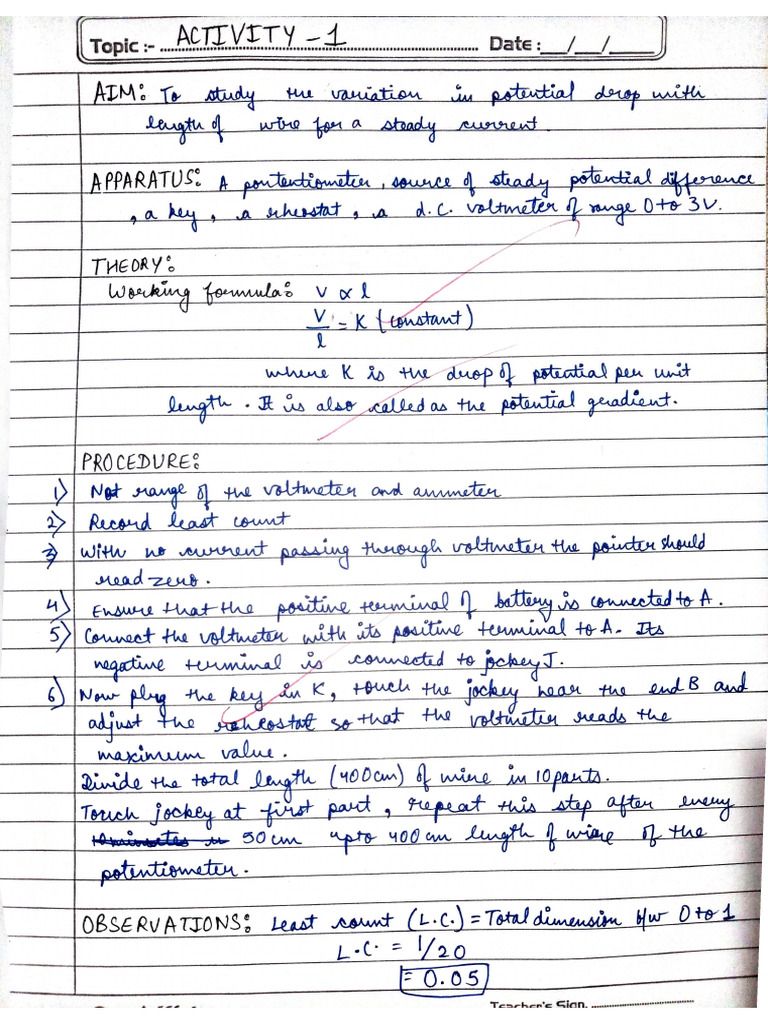 Topic :- ACTIVITY - 1 Date : __/__/____
AIM: To study the variation in potential drop with
length of wire for a steady current.
APPARATUS: A pontentiometer, source of steady potential difference
, a key, a rheostat, a d.C. voltmeter of range 0 to 3V.
THEORY:
Working formula: V ∝ l
V/l = K (constant)
where K is the drop of potential per unit
length. It is also called as the potential gradient.
PROCEDURE:
1) Not range of the voltmeter and ammeter
2) Record least count
3) With no current passing through voltmeter the pointer should
read zero.
4) Ensure that the positive terminal of battery is connected to A.
5) Connect the voltmeter with its positive terminal to A. Its
negative terminal is connected to jockey J.
6) Now plug the key in K, touch the jockey near the end B and
adjust the rheostat so that the voltmeter reads the
maximum value.
Divide the total length (400cm) of wire in 10 parts.
Touch jockey at first part, repeat this step after every
50cm upto 400cm length of wire of the
potentiometer.
OBSERVATIONS: Least count (L.C.) = Total dimension b/w 0 to 1
L.C. = 1/20
= 0.05
Teacher's Sign.